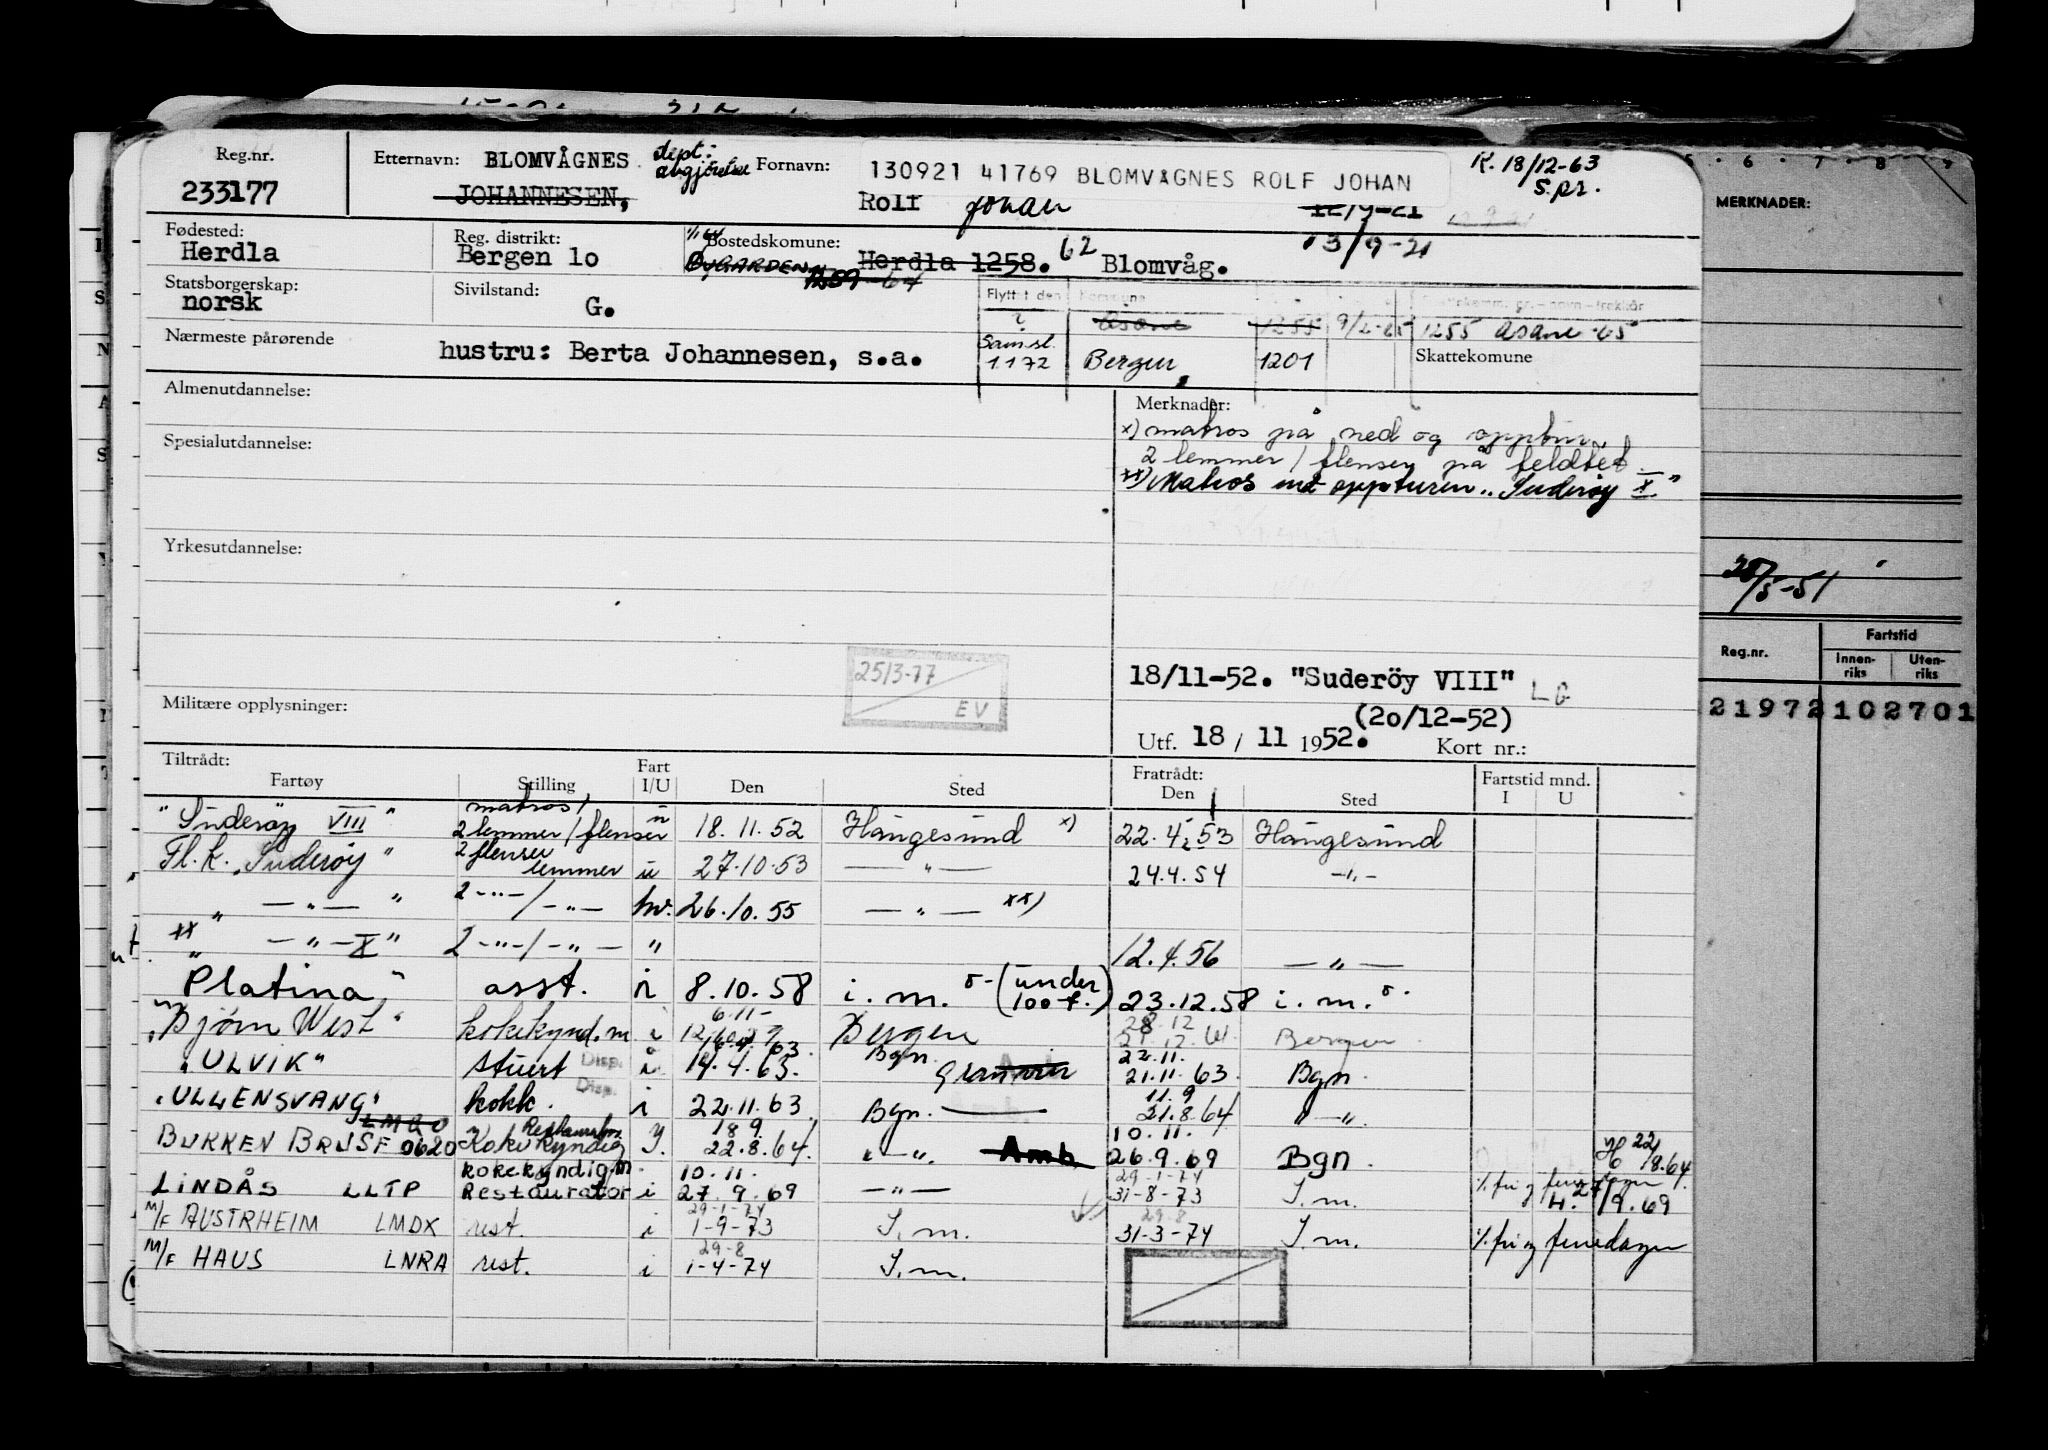 Reg.nr. Etternavn: BLOMVÅGNES dept: avgjørelse Fornavn: 130921 41769 BLOMVÅGNES ROLF JOHAN K. 18/12-63 s.pr.
233177 JOHANNESEN, Rolf Johan 12/9-21
Fødested: Reg. distrikt: Bostedskomune: 13/9-21
Herdla Bergen 1o ØYGARDEN Herdla 1258. 62 Blomvåg.
1259-64
Statsborgerskap: Sivilstand: Flyttet den Kommune
norsk G. ? Åsane 1255 9/2-65 1255 Åsane -65
Nærmeste pårørende Sam.sl. Skattekomune
hustru: Berta Johannesen, s.a. 1172 Bergen 1201
Almenutdannelse: Merknader:
x) matros på ned og opptur
2 lemmer / flenser på feldtet
Spesialutdannelse: xx) Matros ned oppturen "Suderöy X"
Yrkesutdannelse:
25/3-77
EV
18/11-52. "Suderöy VIII" LG
Militære opplysninger: (2o/12-52)
Utf. 18 / 11 1952. Kort nr.:
Tiltrådt: Fratrådt: Fartstid mnd.
Fartøy Stilling Fart I/U Den Sted Den Sted I U
"Suderöy VIII" matros / 2 lemmer / flenser u 18.11.52 Haugesund x) 22.4.53 Haugesund
Fl.k. "Suderöy" 2 flenser lemmer u 27.10.53 — " — 24.4.54 — " —
" — " — " 2 — " — / — " — hv. 26.10.55 — " — xx)
xx " — " — X" 2 — " — / — " — " 12.4.56 — " —
"Platina" asst. i 8.10.58 i.m. o- (under 100 t.) 23.12.58 i.m. o-
"Bjørn West" kokekynd.m i 6.11 Bergen 28.12 Bergen
"ULVIK" stuert Disp. i 14.4.63. Bgn. Granvin 22.11. 21.11.63. Bgn.
"ULLENSVANG" kokk. Disp. i 22.11.63 Bgn. — 11.9 21.8.64 " — ".
LMQO
BURKEN BRUSF 0620 Kokekyndig Restauratør 18 9 22.8.64. " — ". Amb 10.11. 26.9.69 Bgn. H 22/8.64
LINDÅS LLTP kokekyndig.m Restauratør i 10.11. 27.9.69 — " — 29-1-74 31-8-73 I.m. ./. fri og feriedager H. 27/9.69
M/F AUSTRHEIM LMDX rest. i 29-1-74 1-9-73 I.m. 29-8 31-3-74 I.m. ./. fri og feriedager
M/F HAUS LNRA rest. i 29-8 1-4-74 I.m.
5 . 6 . 7 . 8
MERKNADER:
28/5-51
Reg.nr. Fartstid
Innenriks Utenriks
21972102701